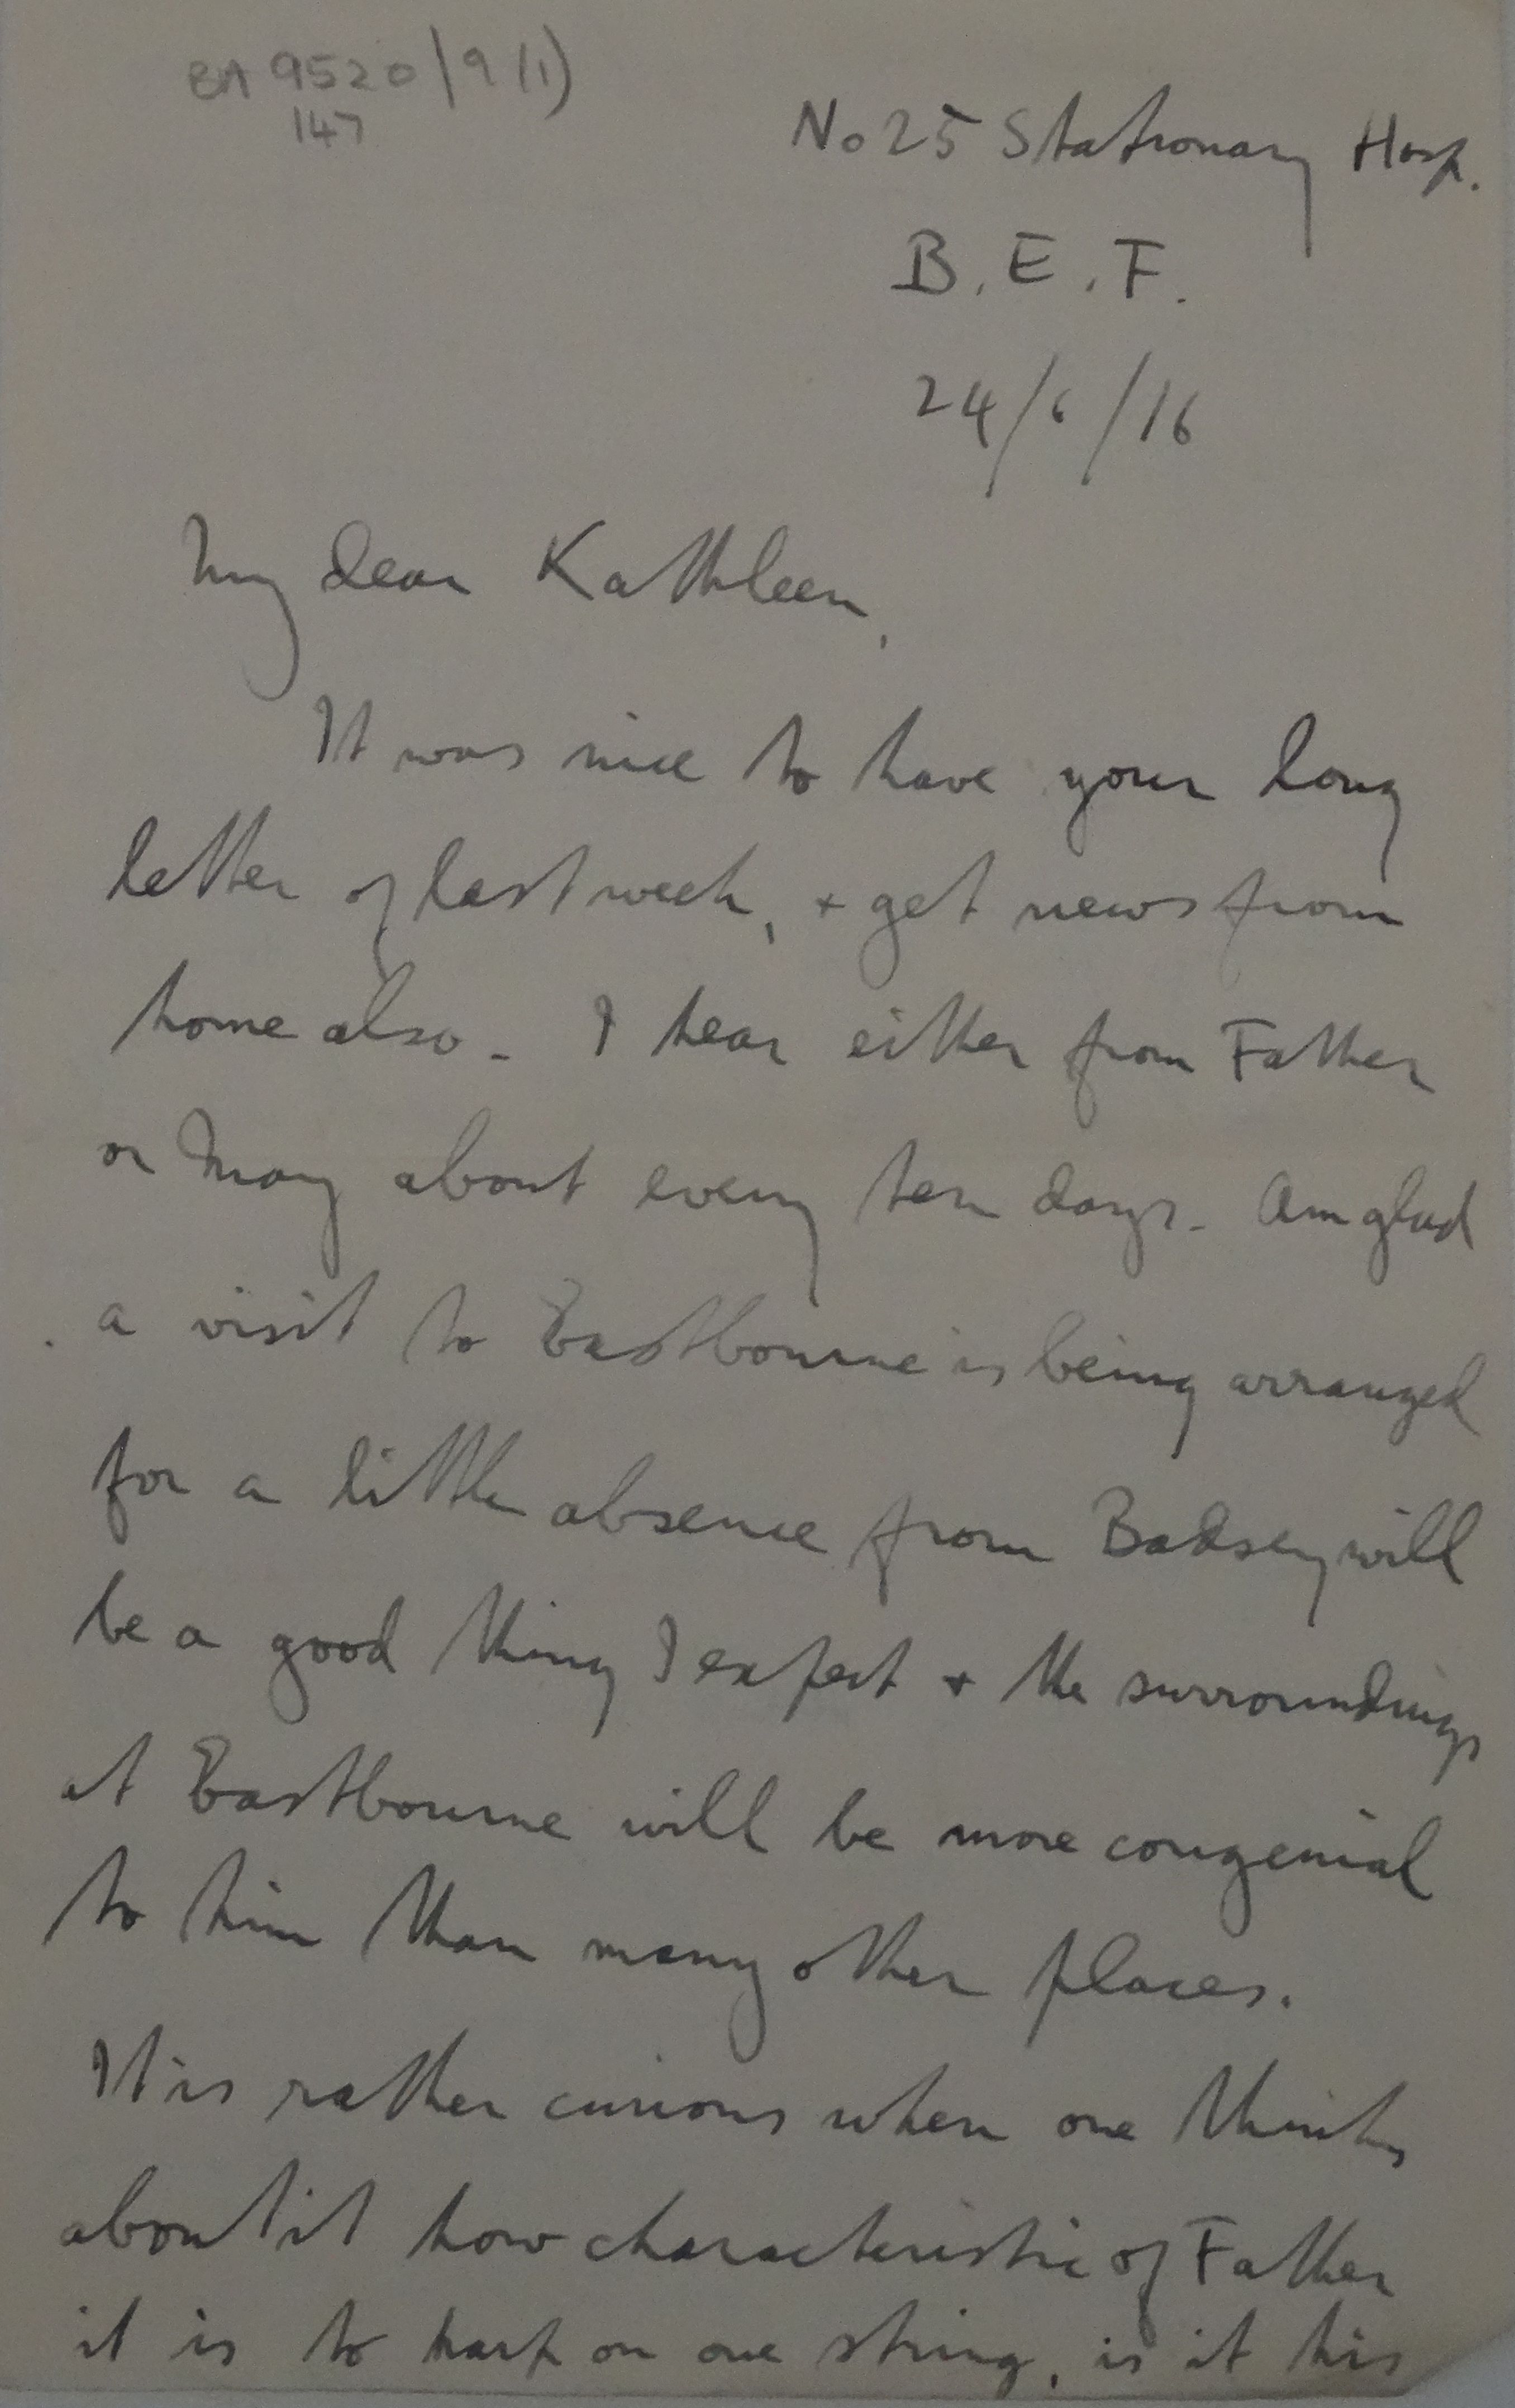 BA 9520/9(1)
147
No 25 Stationary Hosp.
B.E.F.
24/6/16
My dear Kathleen,
It was nice to have your long
letter of last week, + get news from
home also. I hear either from Father
or May about every ten days. Am glad
a visit to Eastbourne is being arranged
for a little absence from Badsey will
be a good thing I expect + the surroundings
at Eastbourne will be more congenial
to him than many other places.
It is rather curious when one thinks
about it how characteristic of Father
it is to harp on one string, is it his